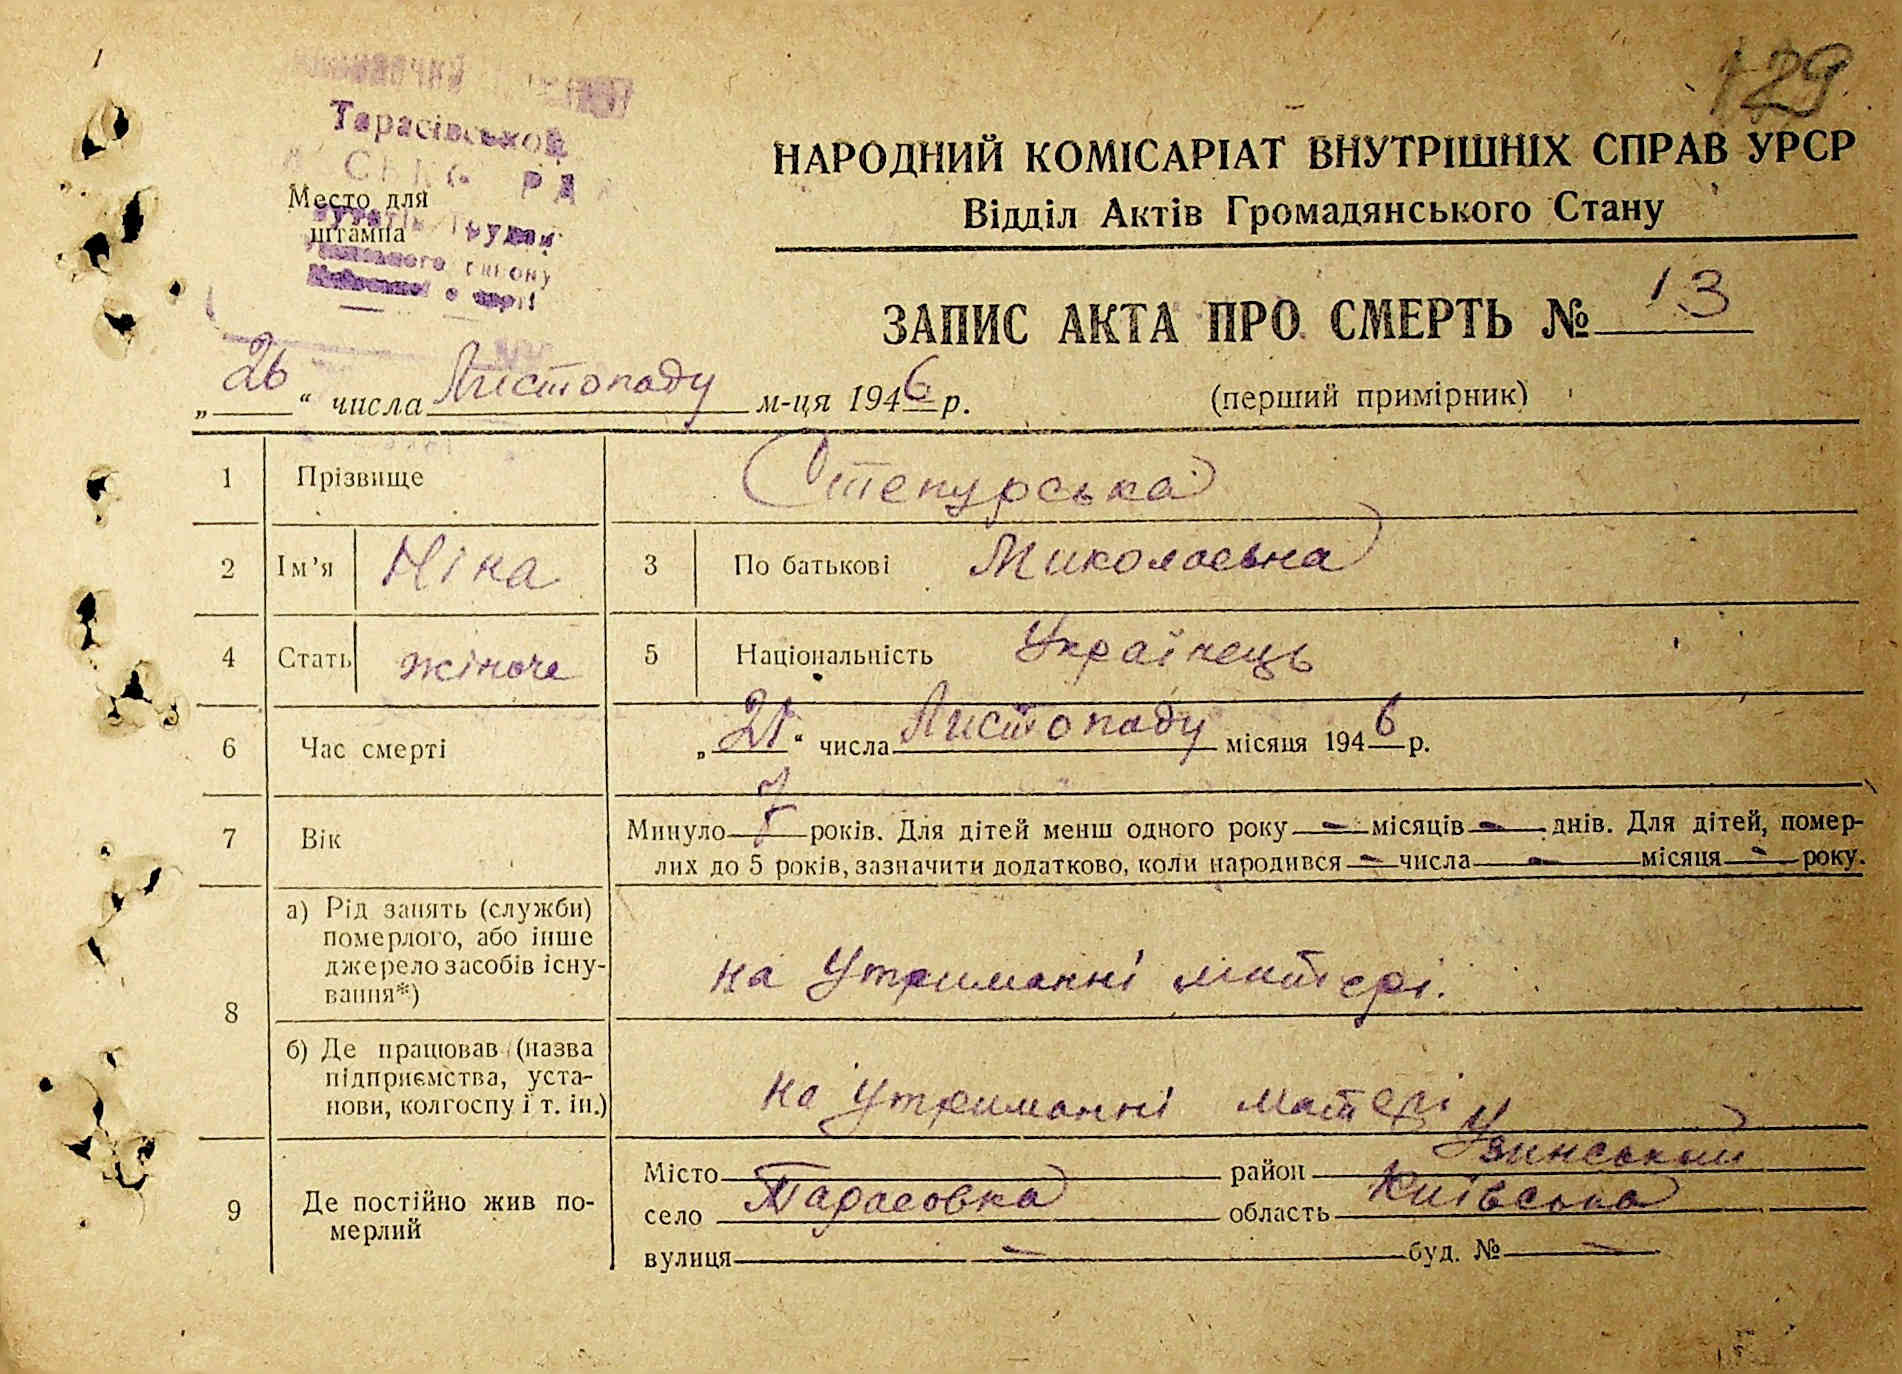 129
Тарасівської
Место для
штампа
НАРОДНИЙ КОМІСАРІАТ ВНУТРІШНІХ СПРАВ УРСР
Відділ Актів Громадянського Стану
ЗАПИС АКТА ПРО СМЕРТЬ № 13
„26“ числа Листопаду м-ця 1946 р.
(перший примірник)
1 Прізвище Степурська
2 Ім’я Ніна 3 По батькові Миколаєвна
4 Стать жіноче 5 Національність Українець
6 Час смерті „21“ числа Листопаду місяця 1946 р.
7 Вік Минуло років. Для дітей менш одного року - місяців - днів. Для дітей, помер-
лих до 5 років, зазначити додатково, коли народився - числа - місяця - року.
8 а) Рід занять (служби)
померлого, або інше
джерело засобів існу-
вання*)
на Утриманні матері.
б) Де працював (назва
підприємства, уста-
нови, колгоспу і т. ін.)
на Утриманні матері
9 Де постійно жив по-
мерлий
Місто район Узинський
село Тарасовка область Київська
вулиця - буд. № -